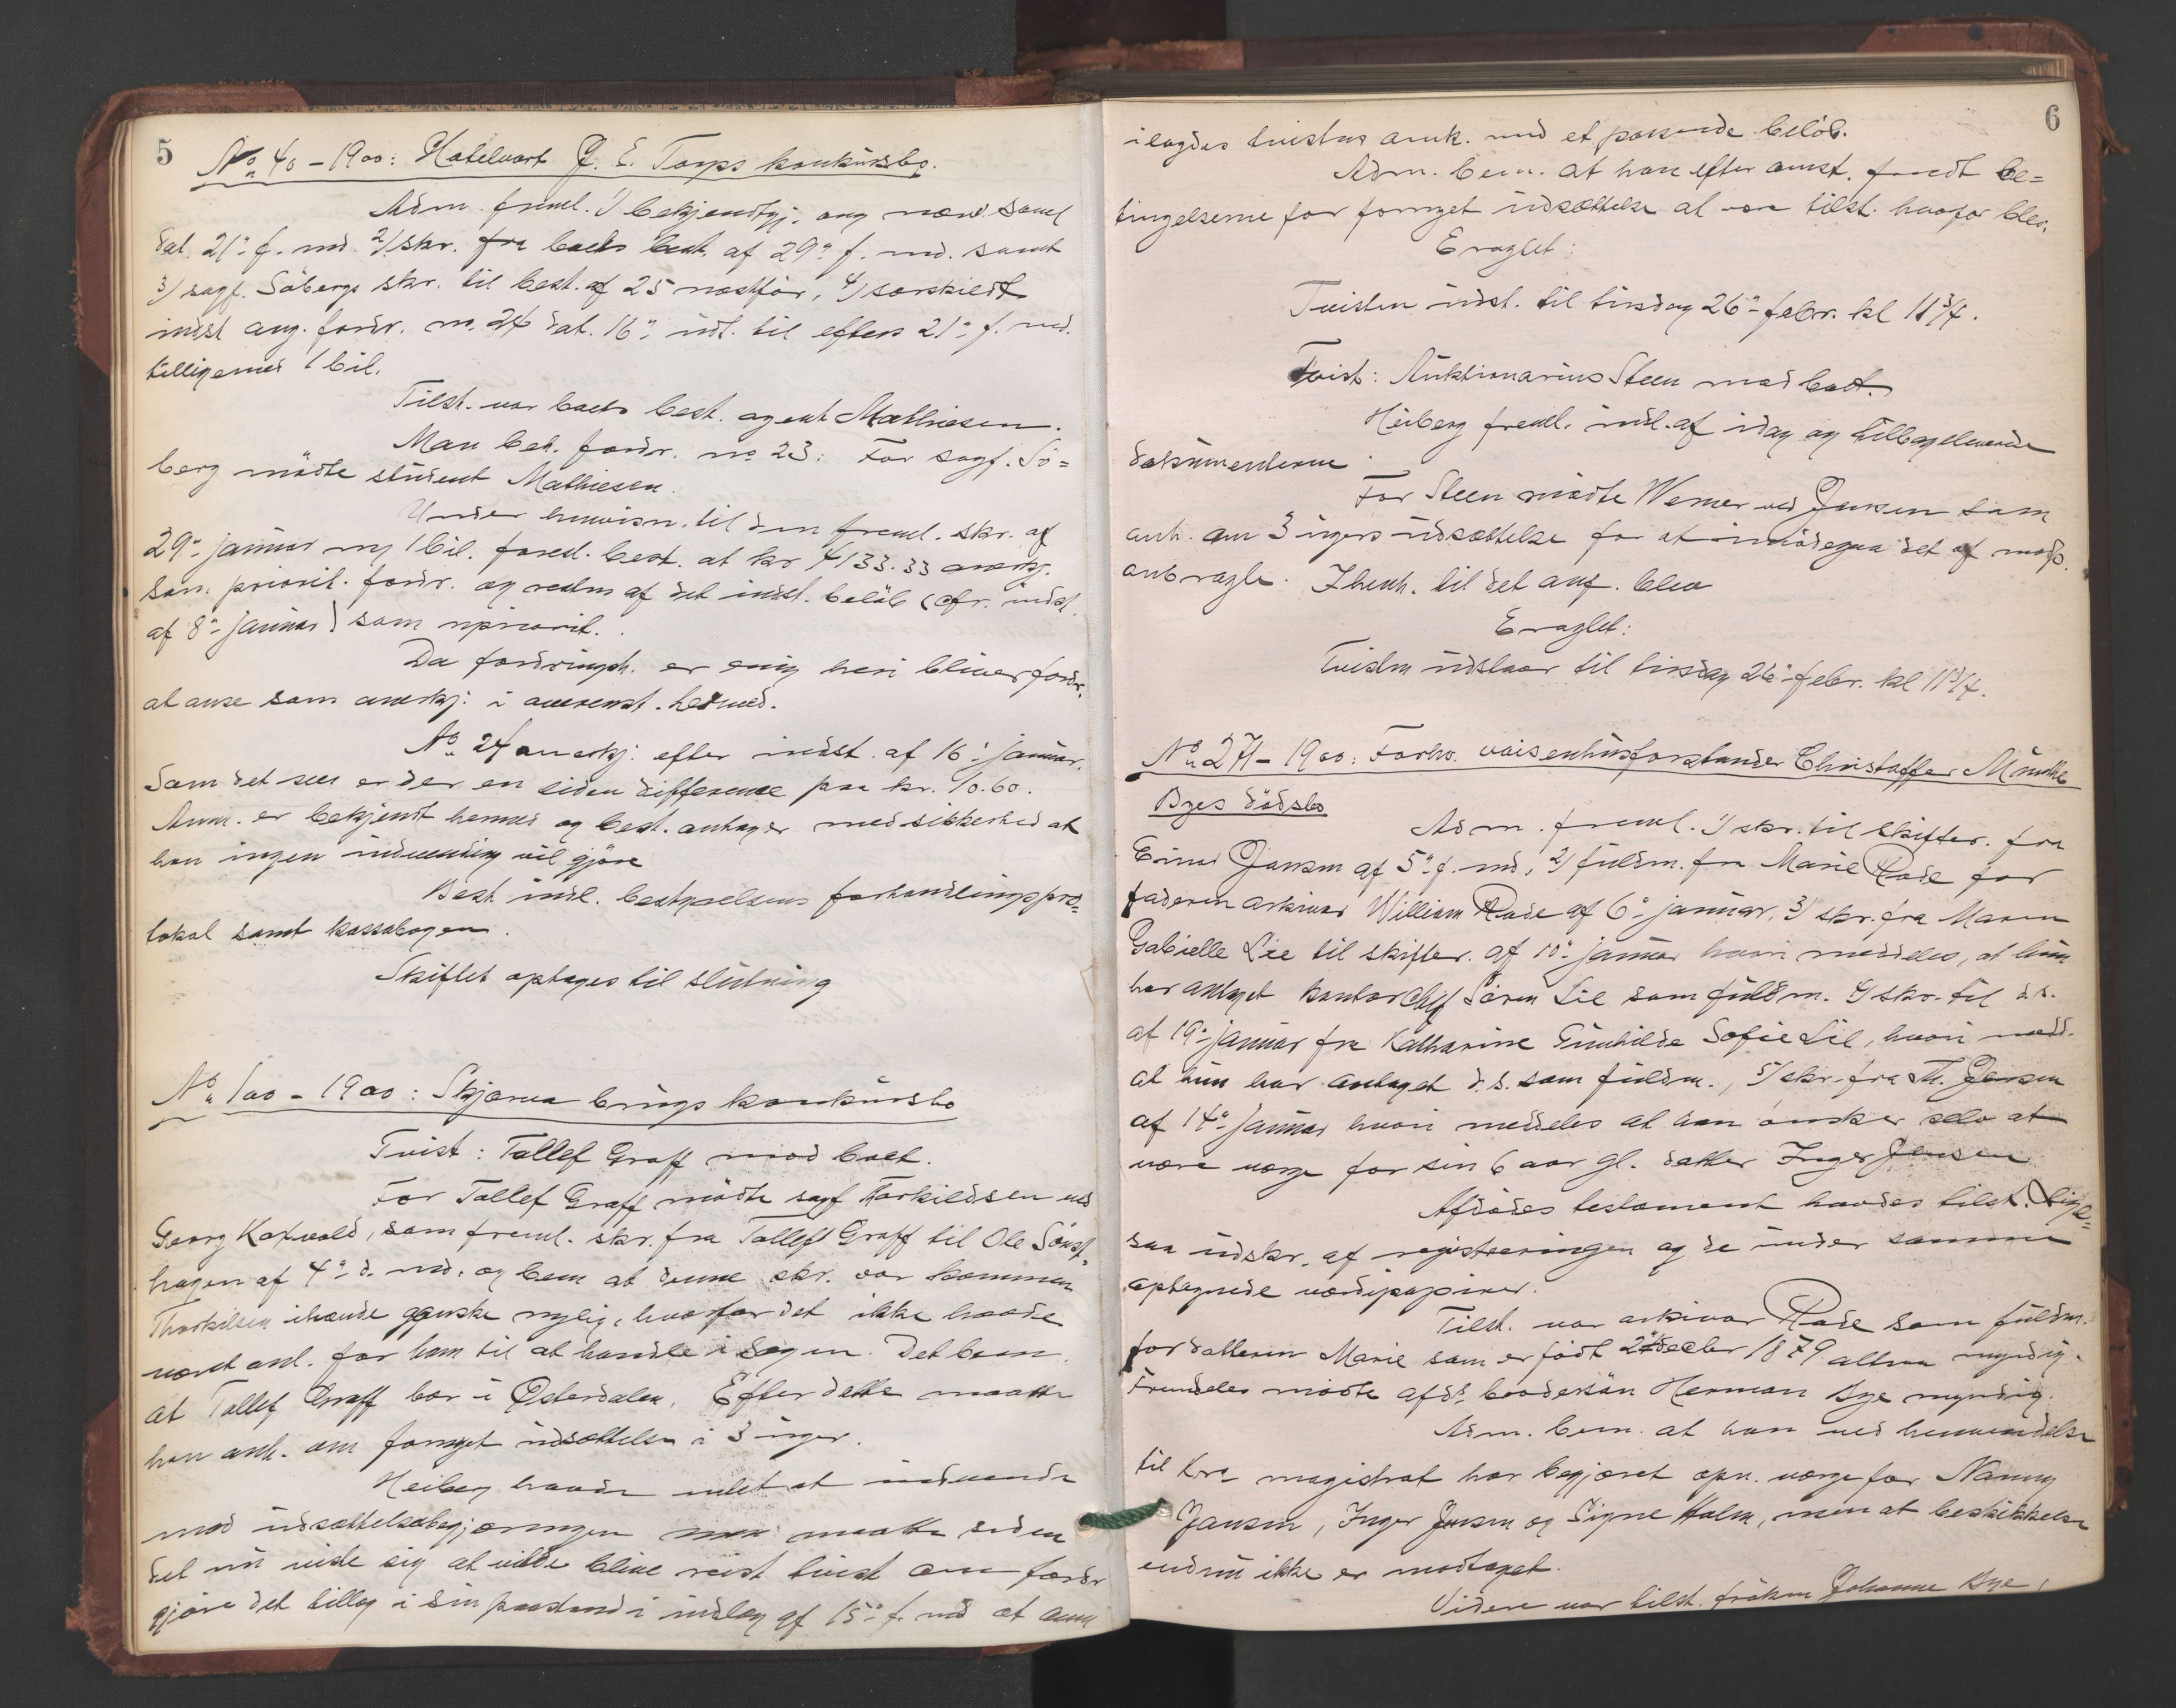 5
No 40 - 1900: Hotelvært J. E. Torps konkursbo.
Adm. freml. 1) bekjendtgj. ang møde saml
dat. 21de f. md. 2) skr. fra boets best. af 29de f. md. samt
3) sagf. Söbergs skr. til best. af 25 næstför, 4) særskildt
indst ang. fordr. no. 24 dat. 16de idt. til efters 21de f. md.
tilligemed 1 bil.
Tilst. var boets best. agent Mathiesen.
Man beh. fordr. no 23: For sagf. Sö=
berg mödte student Mathiesen.
Under henvisn. til den freml. skr. af
29de januar og 1 bil. foresl. best. at kr 4133.33 anerkj.
som priorit. fordr. og resten af det indst. belöb (cfr. indst.
af 8de januar) som upriorit.
Da fordringsh. er enig heri bliver fordr.
at anse som anerkj. i overenst. hermed.
No 24 anerkj. efter indst. af 16de januar.
Som det sees er der en liden difference paa kr. 10.60.
Anm. er bekjendt hermed og best. antager med sikkerhed at
han ingen indvending vil gjöre
Best. indl. bestyrelsens forhandlingspro=
tokol samt kassabogen.
Skiftet optages til slutning
No 100 - 1900: Skjærva brugs konkursbo
Tvist: Tollef Graff mod boet.
For Tollef Graff mödte sagf Torkildsen ved
Georg Kaxvold, som freml. skr. fra Tollef Graff til Ole Sönst=
hagen af 4de d. md. og bem at denne skr. var kommen
Thorkilsen ihænde ganske nylig, hvorfor det ikke havde
været anl. for ham til at handle i sagen. Det bem.
at Tollef Graff bor i Österdalen. Efter dette maatte
han anh. om fornyet udsættelse i 3 uger.
Heiberg havde intet at indvende
mod udsættelsesbegjæringen men maatte siden
det nu viste sig at vilde blive reist tvist om fordr
gjöre det tillæg i sin paastand i indlæg af 15de f. md at anm
6
ilagdes tvistens omk. med et passende belöb.
Adm. bem. at han efter omst. fandt be=
tingelserne for fornyet udsættelse at være tilst. hvorfor blev.
Eragtet:
Tvisten udst. til tirsdag 26de febr. kl 11 3/4.
Tvist: Auktionarius Steen mod boet.
Heiberg freml. indl. af idag og tilbageleverede
dokumenterne.
For Steen mödte Werner ved Jensen som
anh. om 3 ugers udsættelse for at imödegaa det af modp.
anbragte. I henh. til det anf. blev
Eragtet:
Tvisten udstaar til tirsdag 26de febr. kl 11 3/4.
No 271 - 1900: Forhv. vaisenhusforstander Christoffer Münthe
Byes dödsbo
Adm. freml. 1) skr. til skifter. fra
Einar Jansen af 5de f. md, 2) fuldm. fra Marie Rode for
faderen arkivar William Rode af 6de januar, 3) skr. fra Maren
Gabielle Lie til skifter. af 10de januar hvori meddeles, at hun
har antaget kontorchef Sören Lie som fuldm. 4) skr. til d.s.
af 19de januar fra Katharine Gunhilde Sofie Lie, hvori medd.
at hun har antaget d.s. som fuldm., 5) skr. fra Th. Jensen
af 14de januar hvori meddeles at han önsker selv at
være værge for sin 6 aar gl. datter Inger Jensen
Afdödes testament havdes tilst. Lige=
saa udskr. af registreringen og de under samme
optegnede værdipapirer.
Tilst. var arkivar Rode som fuldm.
for datteren Marie som er födt 2den decbr 1879 altsaa myndig.
Fremdeles mödte afds brodersön Herman Bye myndig.
Adm. bem. at han ved henvendelse
til Kra magistrat har begjæret opn. værge for Nanny
Jansen, Inger Jensen og Signe Holm, men at beskikkelse
endnu ikke er modtaget.
Videre var tilst. fröken Johanne Bye,